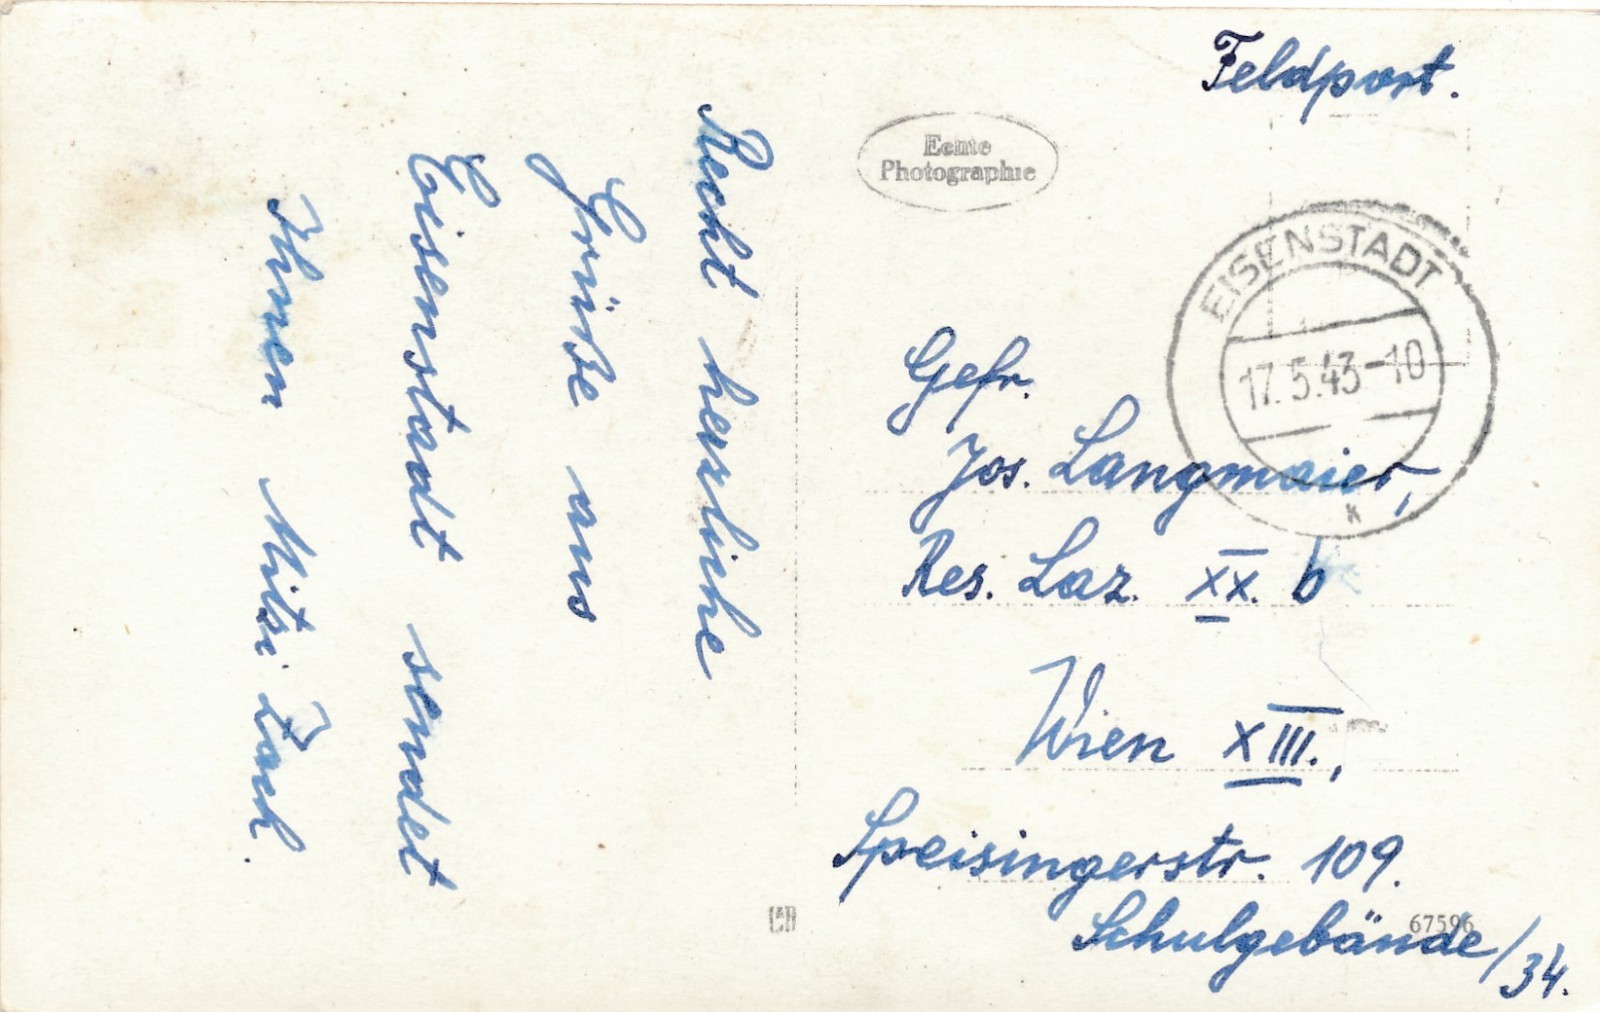 Recht herzliche
Grüße aus
Eisenstadt sendet
Ihnen Mitzi Zach.
Feldpost.
Echte
Photographie
EISENSTADT
17.5.43-10
k
Gefr.
Jos. Langmaier,
Res. Laz. XX. b
Wien XIII.,
Speisingerstr. 109.
67596
Schulgebäude/34.